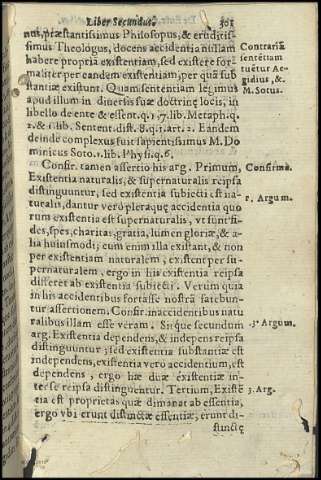 Liber Secundus. 301
nus, præstantissimus Philosophus, & eruditis-
simus Theologus, docens accidentia nullam
habere propria existentiam, sed existere for-
maliter per eandem existentiam, per quã sub
stantiæ existunt. Quam sententiam legimus
apud illum in diversis suæ doctrinę locis, in
libello de ente & essent. q. 1. 7. lib. Metaph. q.
2. & 1. lib. Sentent. dist. 8. q. 1. art. 2. Eandem
deinde complexus fuit sapientissimus M. Do
minicus Soto. 1. lib. Physi. q. 6.
Contrariã
sentẽtiam
tuẽtur Ae-
gidius, &.
M. Sotus.
Confir. tamen assertio his arg. Primum,
Existentia naturalis, & supernaturalis reipsa
distinguuntur, sed existentia subiecti est na
turalis, dantur vero pleraquę accidentia quo
rum existentia est supernaturalis, vt sunt fi-
des, spes, charitas, gratia, lumen gloriæ, & a-
lia huiusmodi; cum enim illa existant, & non
per existentiam naturalem, existent per su-
pernaturalem, ergo in his existentia reipsa
differet ab existentia subiecti. Verum quia
in his accidentibus fortasse nostrã satebun-
tur assertionem. Confir. in accidentibus natu
ralibus illam esse veram. Sit que secundum
arg. Existentia dependens, & independens reipsa
distinguuntur; sed existentia substantiæ est
independens, existentia vero accidentium, est
dependens, ergo hæ duæ existentiæ in-
ter se reipsa distinguentur. Tertium, Existẽ
tia est proprietas quæ dimanat ab essentia,
ergo vbi erunt distinctæ essentiæ, erunt di-
stinctę
Confirma.
1. Argum.
2. Argum.
3. Arg.